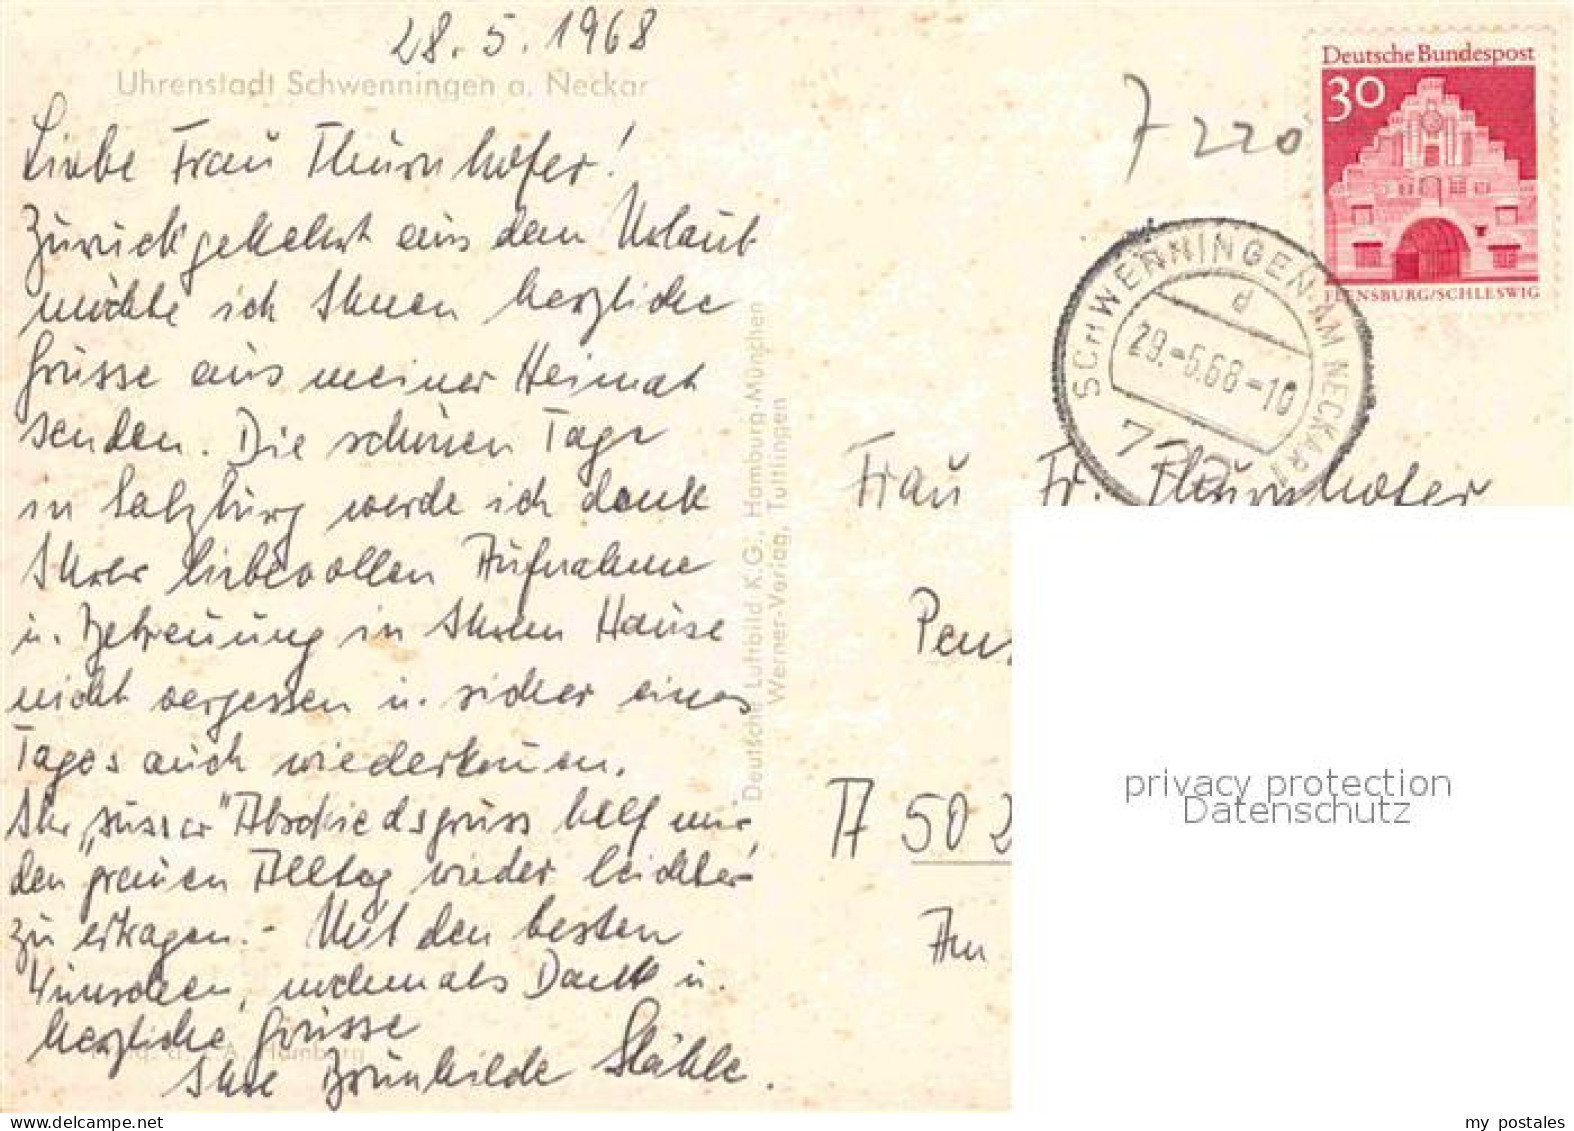 28.5.1968
Uhrenstadt Schwenningen a. Neckar
Liebe Frau Thurnhofer!
Zurückgekehrt aus dem Urlaub
möchte ich Ihnen herzliche
Grüsse aus meiner Heimat
senden. Die schönen Tage
in Salzburg werde ich dank
Ihrer liebevollen Aufnahme
u. Betreuung in Ihrem Hause
nicht vergessen u. sicher eines
Tages auch wiederkommen.
Ihr „süsser" Abschiedsgruss half mir,
den grauen Alltag wieder leichter
zu ertragen. - Mit den besten
Wünschen, nochmals Dank u.
herzliche Grüsse
Ihre Brunhilde Stähle.
Deutsche Luftbild K.G., Hamburg-München
Werner-Verlag, Tuttlingen
7220
Deutsche Bundespost
30
FLENSBURG/SCHLESWIG
SCHWENNINGEN AM NECKAR
d
29.-5.68-10
Frau Fr. Thurnhofer
Pens
A 502
Am
privacy protection
Datenschutz
my-tresor.com
my postales